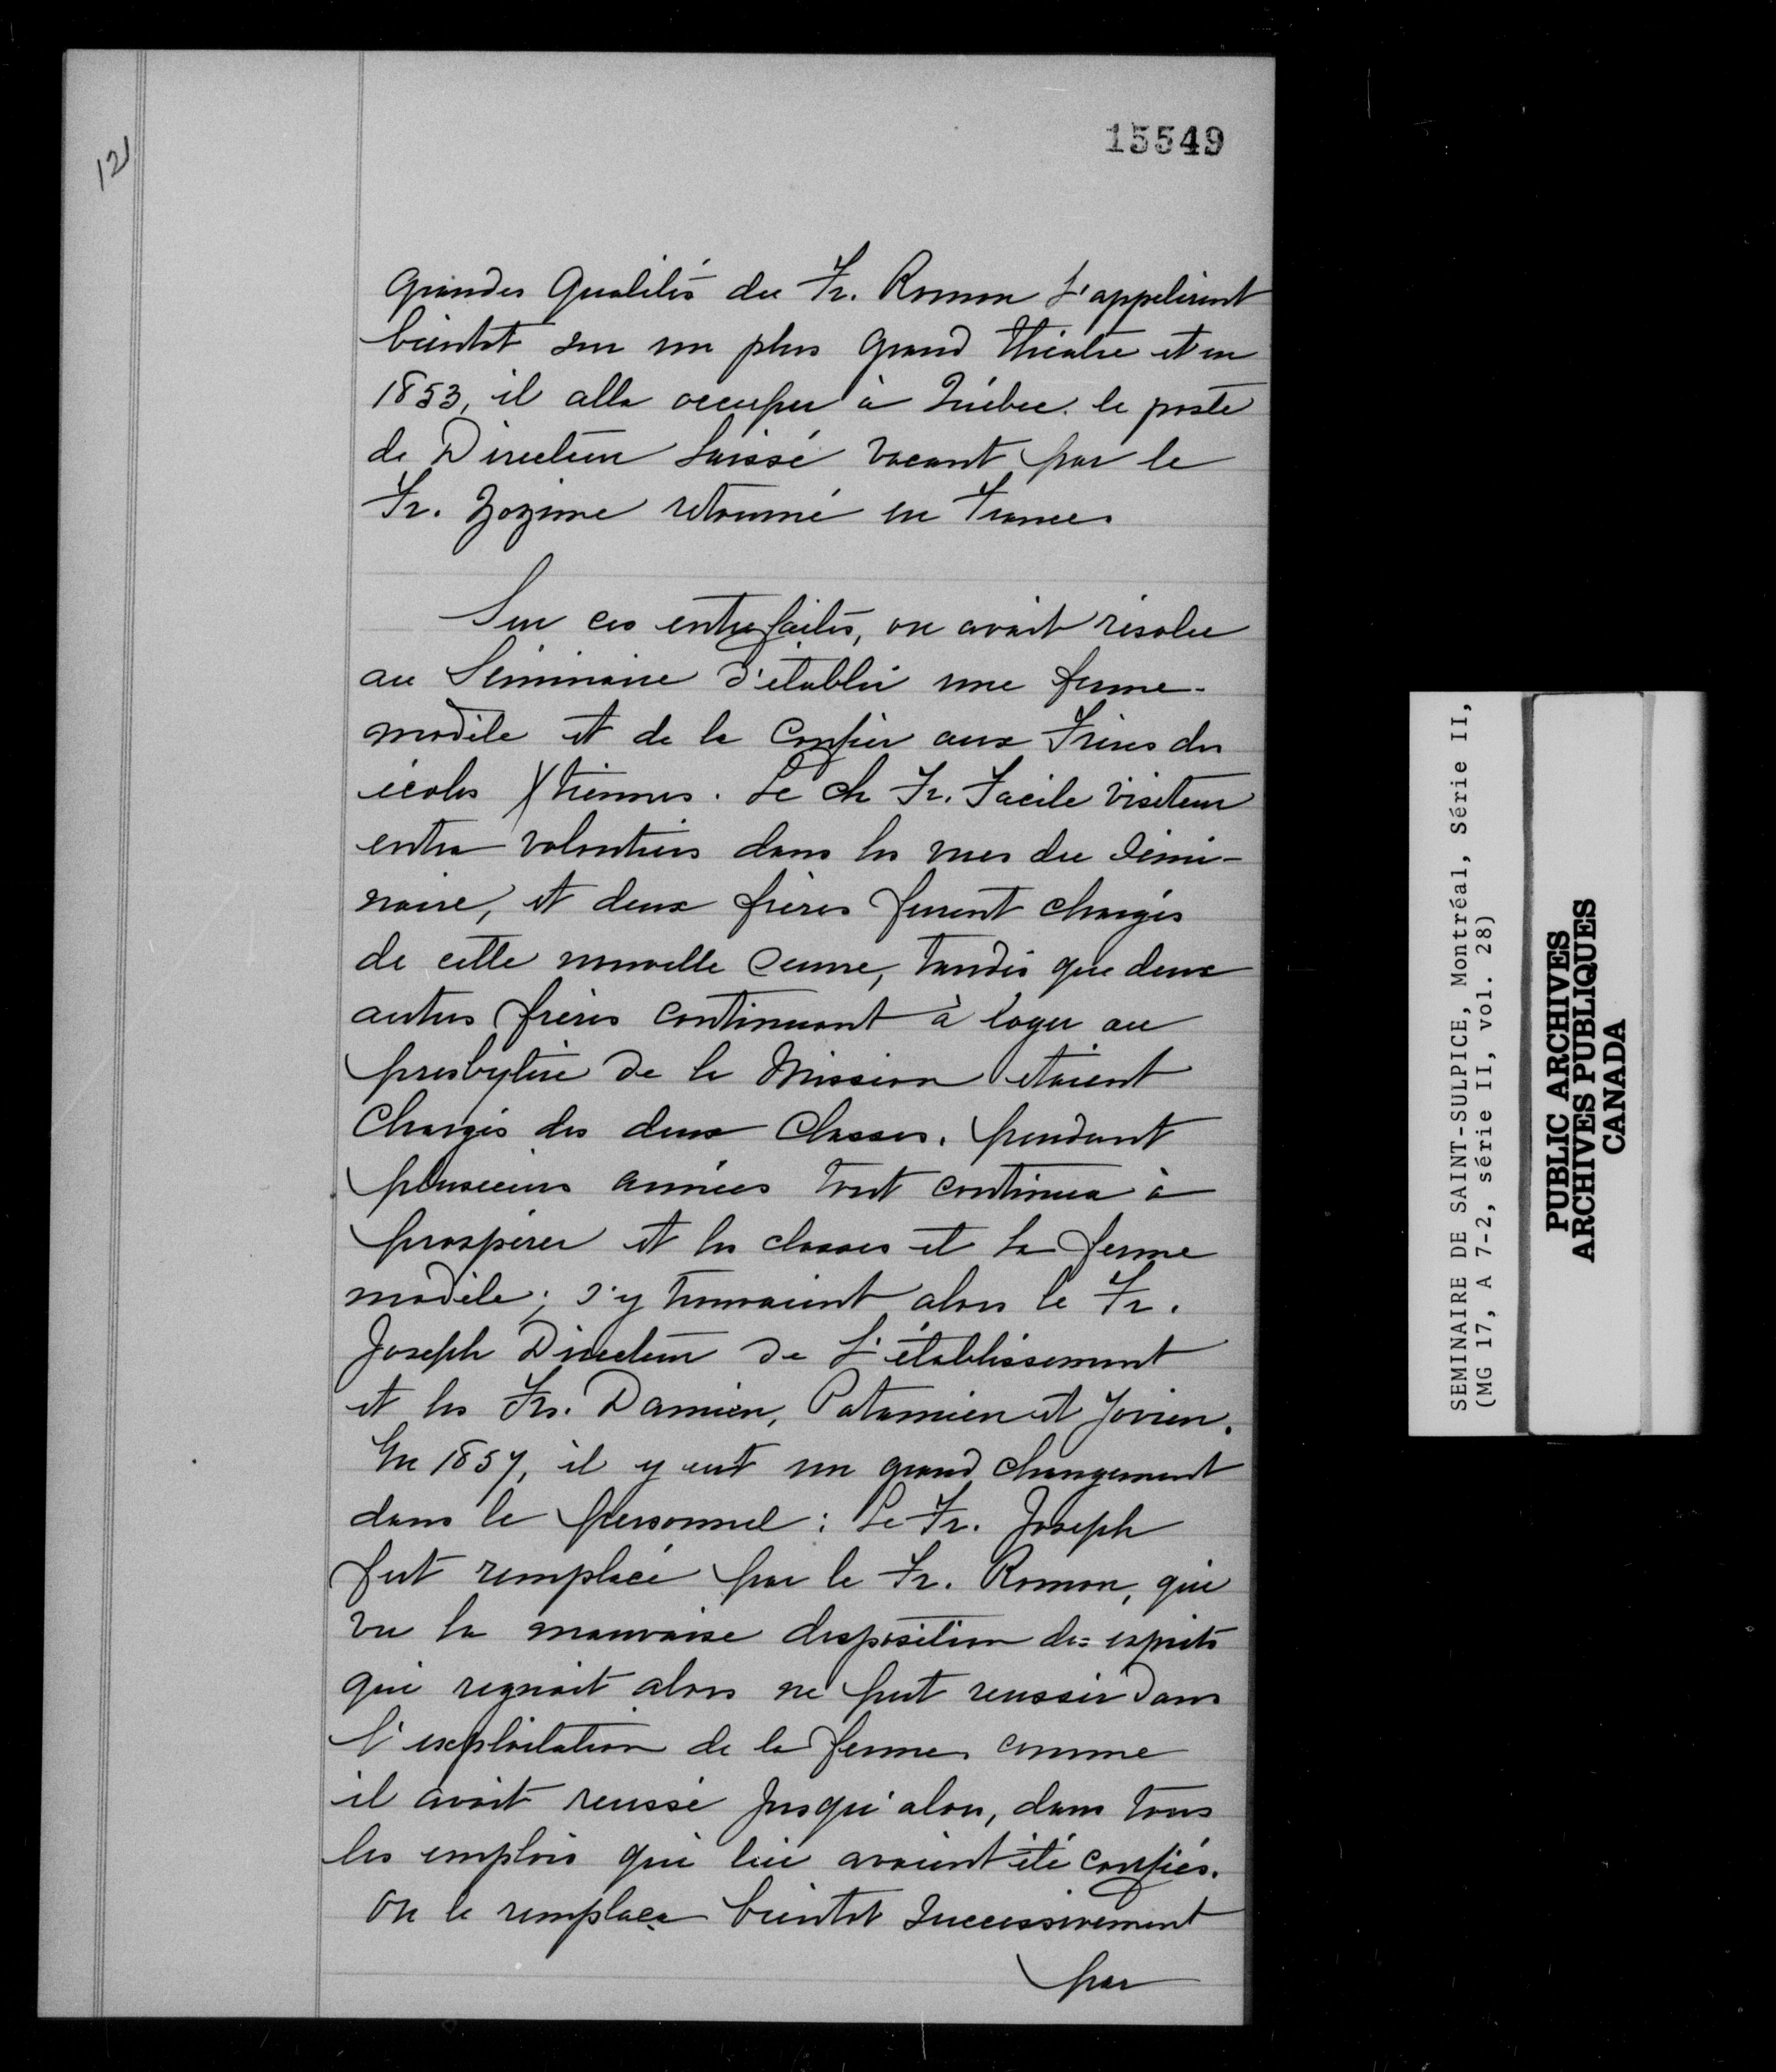 15549
121
Grandes Qualités du Fr. Romon l'appelèrent
bientot sur un plus Grand théatre et en
1853, il alla occuper à Québec le poste
de Directeur laissé vacant par le
Fr. Zozime retourné en France.
Sur ces entrefaites, on avait résolu
au Séminaire d'établir une ferme-
modèle et de la confier aux Frères des
écoles Xtiennes. Le Ch Fr. Facile Visiteur
entra volontiers dans les vues du Sémi-
naire, et deux frères furent chargés
de cette nouvelle Oeuvre, tandis que deux
autres frères continuant à loger au
presbytère de la Mission étaient
Chargés des deux Classes. pendant
plusieurs années tout continua à
prospérer et les classes et la ferme
modèle; s'y trouvaient alors le Fr.
Joseph Directeur de l'établissement
et les Frs. Damien, Patamien et Jovien.
En 1857, il y eut un grand changement
dans le personnel: Le Fr. Joseph
fut remplacé par le Fr. Romon, qui
vu la mauvaise disposition des esprits
qui regnait alors ne put reussir dans
l'exploitation de la ferme comme
il avait reussi jusqu'alors, dans tous
les emplois qui lui avaient été confiés.
On le remplaça bientot successivement
par
SEMINAIRE DE SAINT-SULPICE, Montréal, Série II,
(MG 17, A 7-2, série II, vol. 28)
PUBLIC ARCHIVES
ARCHIVES PUBLIQUES
CANADA